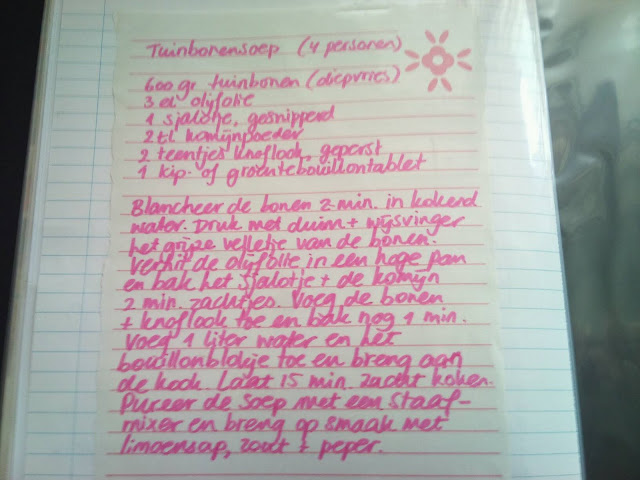 Tuinbonensoep (4 personen)
600 gr tuinbonen (diepvries)
3 el olijfolie
1 sjalotje, gesnipperd
2 tl komijnpoeder
2 teentjes knoflook, geperst
1 kip- of groentebouillontablet
Blancheer de bonen 2 min. in kokend
water. Druk met duim + wijsvinger
het grijze velletje van de bonen.
Verhit de olijfolie in een hoge pan
en bak het sjalotje + de komijn
2 min. zachtjes. Voeg de bonen
+ knoflook toe en bak nog 1 min.
Voeg 1 liter water en het
bouillonblokje toe en breng aan
de kook. Laat 15 min. zacht koken.
Pureer de soep met een staaf-
mixer en breng op smaak met
limoensap, zout + peper.